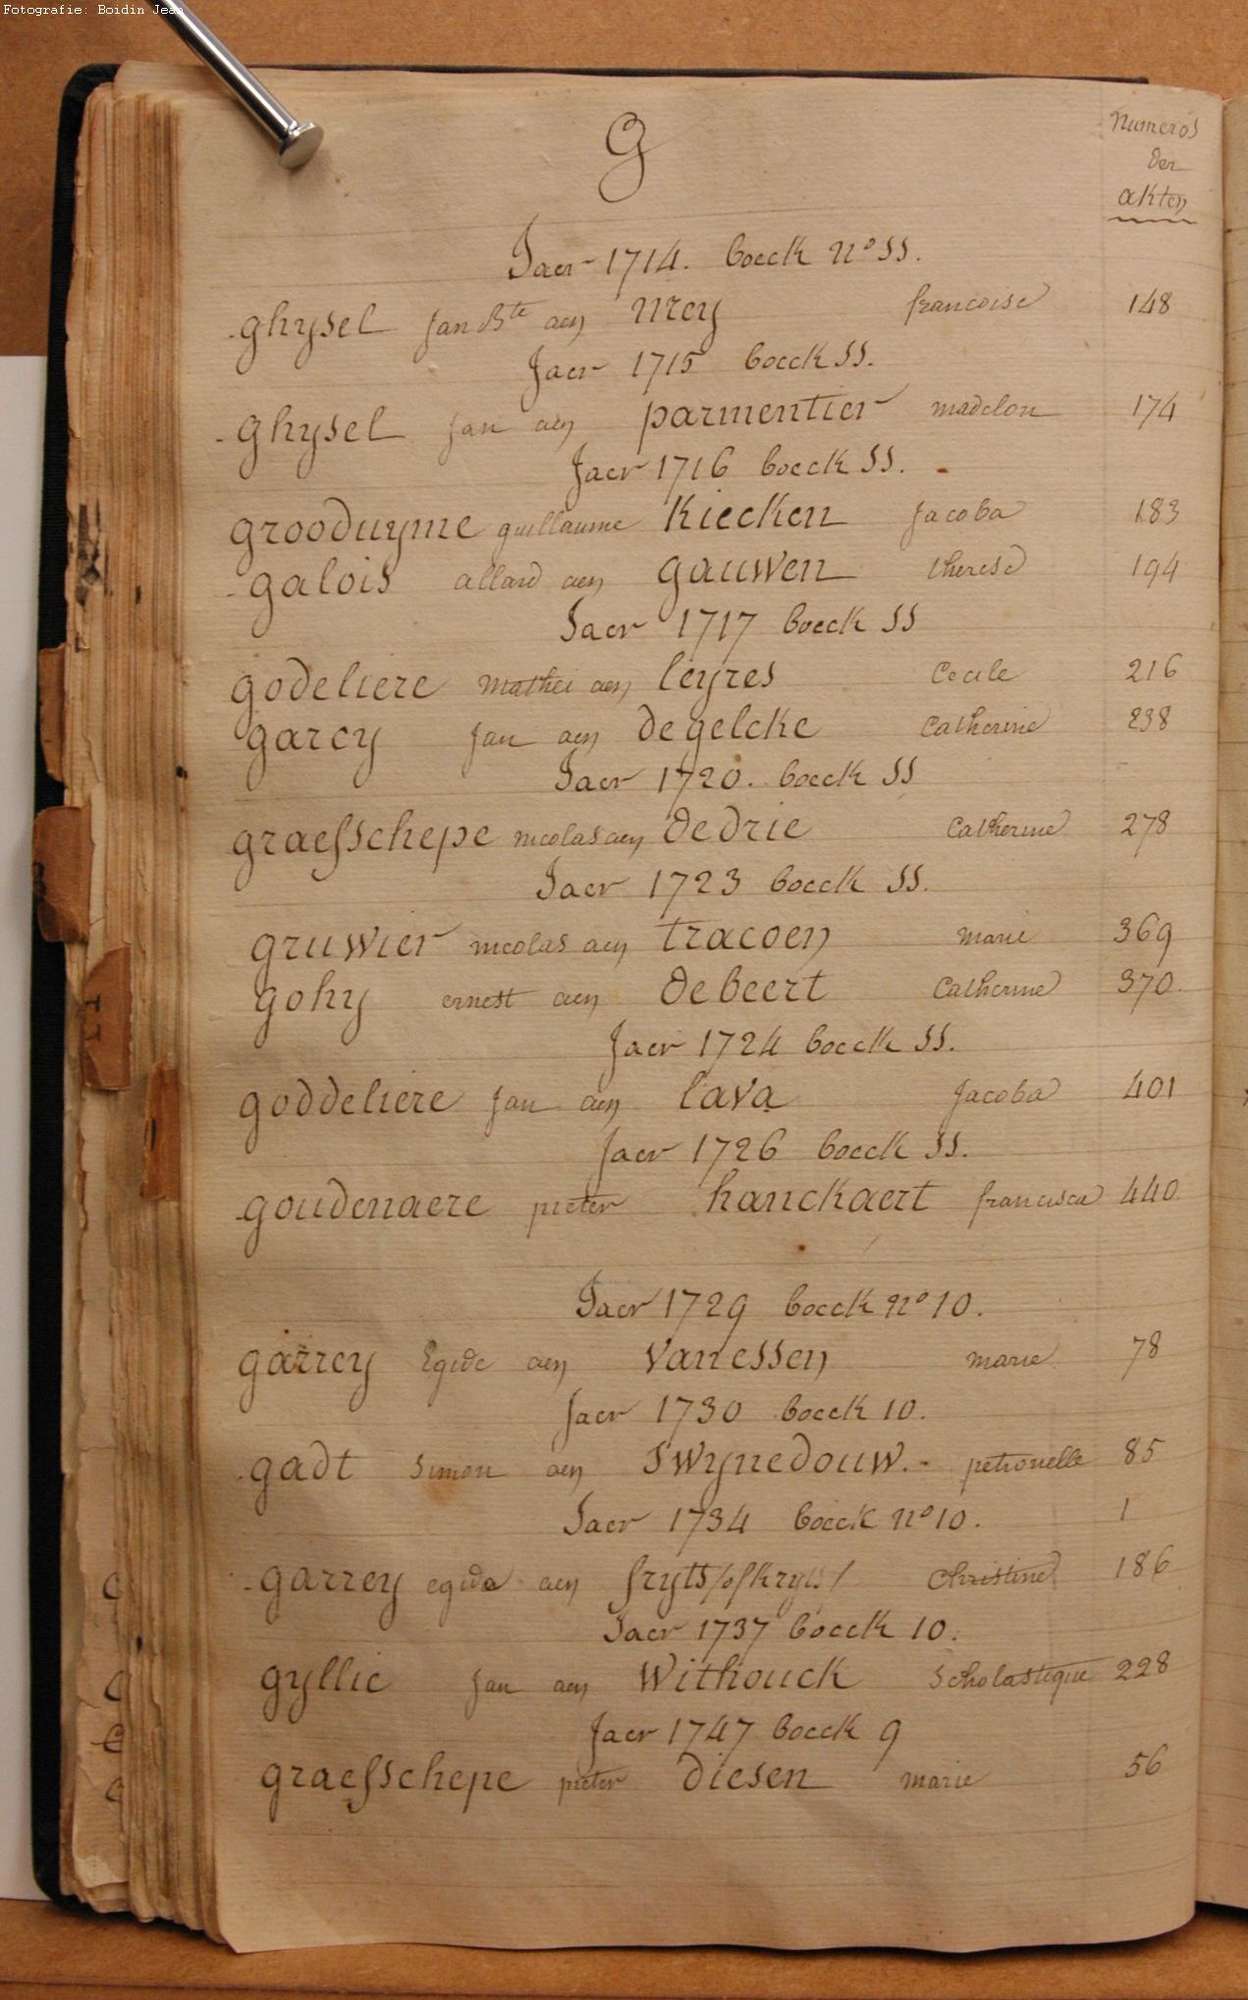 Fotografie: Boidin Jean
G
Numeros
der
akten
Jaer 1714. boeck No SS.
ghysel Jan Bte aen Mrey francoise 148
Jaer 1715 boeck SS.
ghysel Jan aen parmentier madelon 174
Jaer 1716 boeck SS.
grooduyme guillaume Kiecken Jacoba 183
galois allard aen gauwen therese 194
Jaer 1717 boeck SS
godeliere Mathei aen leyres Cecile 216
garcy Jan aen degelcke Catherine 238
Jaer 1720. boeck SS
graefsschepe nicolas aen dedrie Catherine 278
Jaer 1723 boeck SS.
gruwier nicolas aen tracoen marie 369
gohy ernest aen debeert Catherine 370.
Jaer 1724 boeck SS.
goddeliere Jan aen lava Jacoba 401
Jaer 1726 boeck SS.
goudenaere pieter hanckaert francisca 440
Jaer 1729 boeck No 10.
garrey Egide aen Vanessen marie 78
Jaer 1730 boeck 10.
gadt Simon aen Swynedouw. petronelle 85
Jaer 1734 boeck No 10. 1
garrey egide aen fryts/of kryts/ Christine 186
Jaer 1737 boeck 10.
gyllie Jan aen Withouck Scholastique 228
Jaer 1747 boeck 9
graefsschepe pieter diesen marie 56